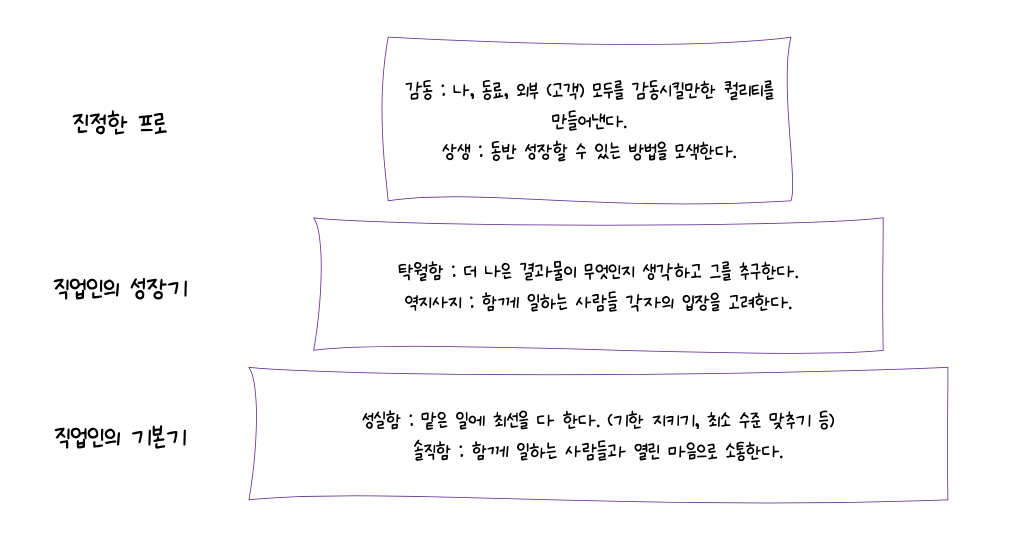 진정한 프로
감동 : 나, 동료, 외부 (고객) 모두를 감동시킬만한 퀄리티를
만들어낸다.
상생 : 동반 성장할 수 있는 방법을 모색한다.
직업인의 성장기
탁월함 : 더 나은 결과물이 무엇인지 생각하고 그를 추구한다.
역지사지 : 함께 일하는 사람들 각자의 입장을 고려한다.
직업인의 기본기
성실함 : 맡은 일에 최선을 다 한다. (기한 지키기, 최소 수준 맞추기 등)
솔직함 : 함께 일하는 사람들과 열린 마음으로 소통한다.